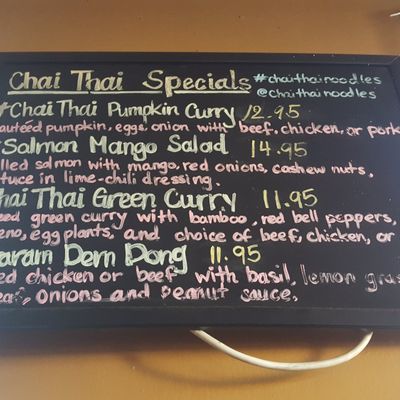 Chai Thai Specials #chaithainoodles
@chaithainoodles
*Chai Thai Pumpkin Curry 12.95
auteed pumpkin, eggs, onion with beef, chicken, or pork
Salmon Mango Salad 14.95
lled salmon with mango, red onions, cashew nuts,
tuce in lime-chili dressing.
hai Thai Green Curry 11.95
green curry with bamboo, red bell peppers,
eno, eggplants, and choice of beef, chicken, or
aram Dem Dong 11.95
ed chicken or beef with basil, lemon gras
onions and peanut sauce.